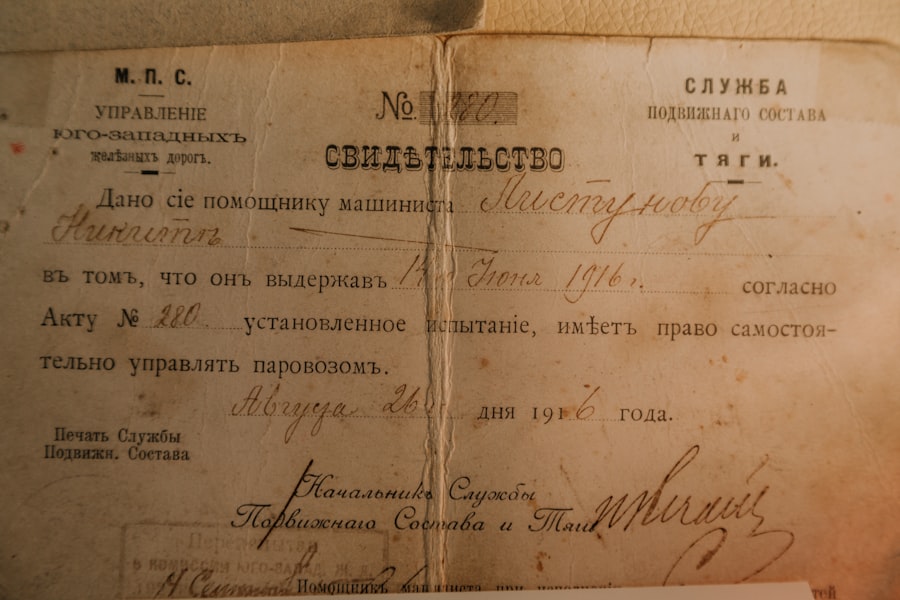 М. П. С.
УПРАВЛЕНІЕ
ЮГО-ЗАПАДНЫХЪ
желѣзныхъ дорогъ.
№ 280.
СЛУЖБА
ПОДВИЖНАГО СОСТАВА
и
ТЯГИ.
СВИДѢТЕЛЬСТВО
Дано сіе помощнику машиниста Пистунову
Никитѣ
въ томъ, что онъ выдержавъ Іюня 1916 г. согласно
Акту № 280 установленное испытаніе, имѣетъ право самостоя-
тельно управлять паровозомъ.
Августа 26 дня 1916 года.
Печать Службы
Подвижн. Состава
Начальникъ Службы
Подвижнаго Состава и Тяги
Помощникъ машиниста при